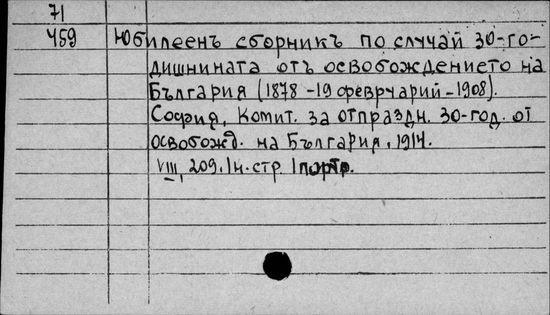 71
459 Юбилеенъ сборникъ по случай 30-го-
дишнината отъ освобождението на
България (1878 -19 феврчарий-1908).
София, Комит. за отпраздн. 30-год. от
освобожд. на България, 1914.
VIII, 209, 1н.стр. 1 портр.